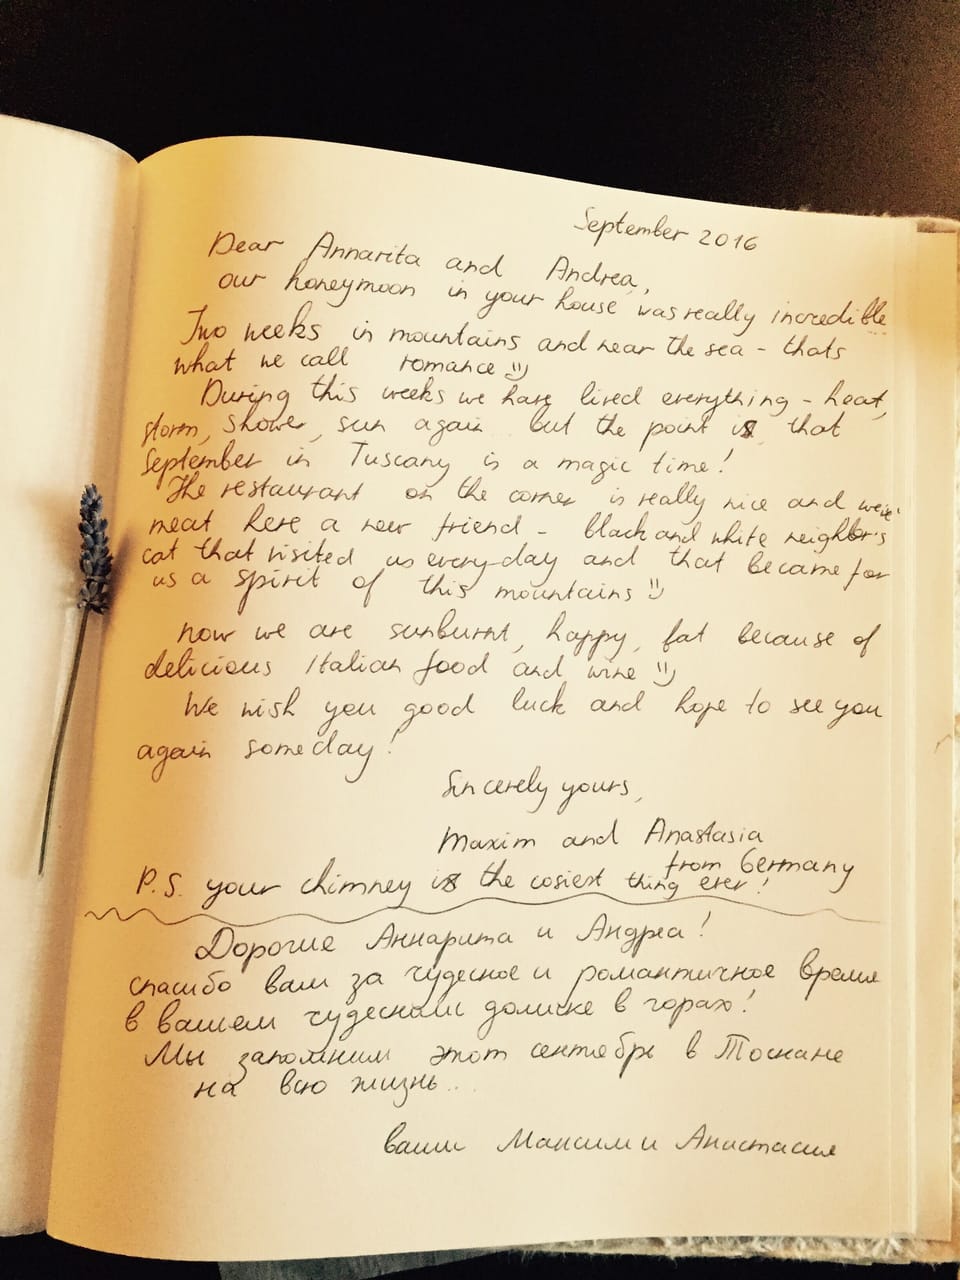 September 2016
Dear Annarita and Andrea,
our honeymoon in your house was really incredible
Two weeks in mountains and near the sea - thats
what we call romance :)
During this weeks we have lived everything - heat,
storm, shower, sun again.. but the point is, that
September in Tuscany is a magic time!
The restaurant on the corner is really nice and we've
meat here a new friend - black and white neighbor's
cat that visited us everyday and that became for
us a spirit of this mountains :)
now we are sunburnt, happy, fat because of
delicious Italian food and wine :)
We wish you good luck and hope to see you
again someday!
Sincerely yours,
Maxim and Anastasia
from Germany
P.S. your chimney is the cosiest thing ever!
Дорогие Аннарита и Андреа!
спасибо вам за чудесное и романтичное время
в вашем чудесном домике в горах!
Мы запомним этот сентябрь в Тоскане
на всю жизнь...
ваши Максим и Анастасия